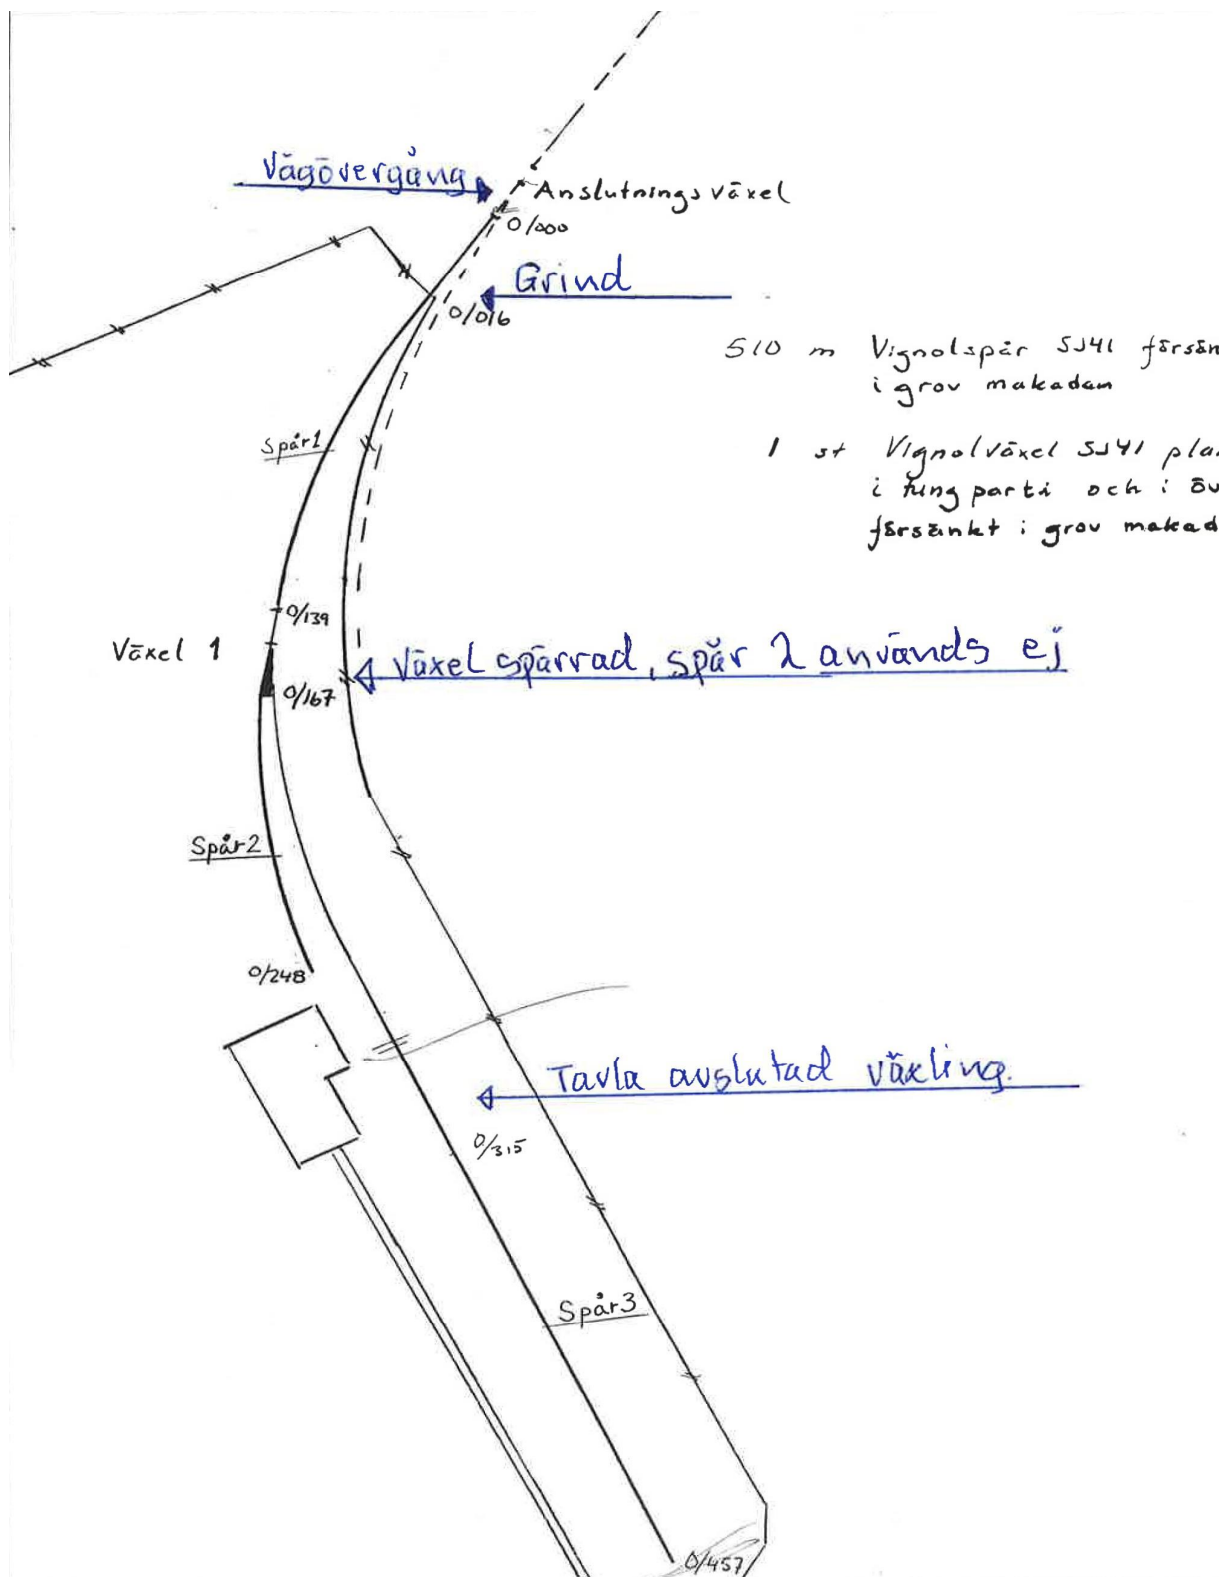 Vägövergång
Anslutningsväxel
0/000
Grind
0/016
510 m Vignolspår SJ41
i grov makadam
Spår1
1 st Vignolväxel SJ41
i tungparti och i
försänkt i grov
0/139
Växel 1
Växel spärrad, spår 2 används ej
0/167
Spår2
0/248
Tavla avslutad växling.
0/315
Spår3
0/457